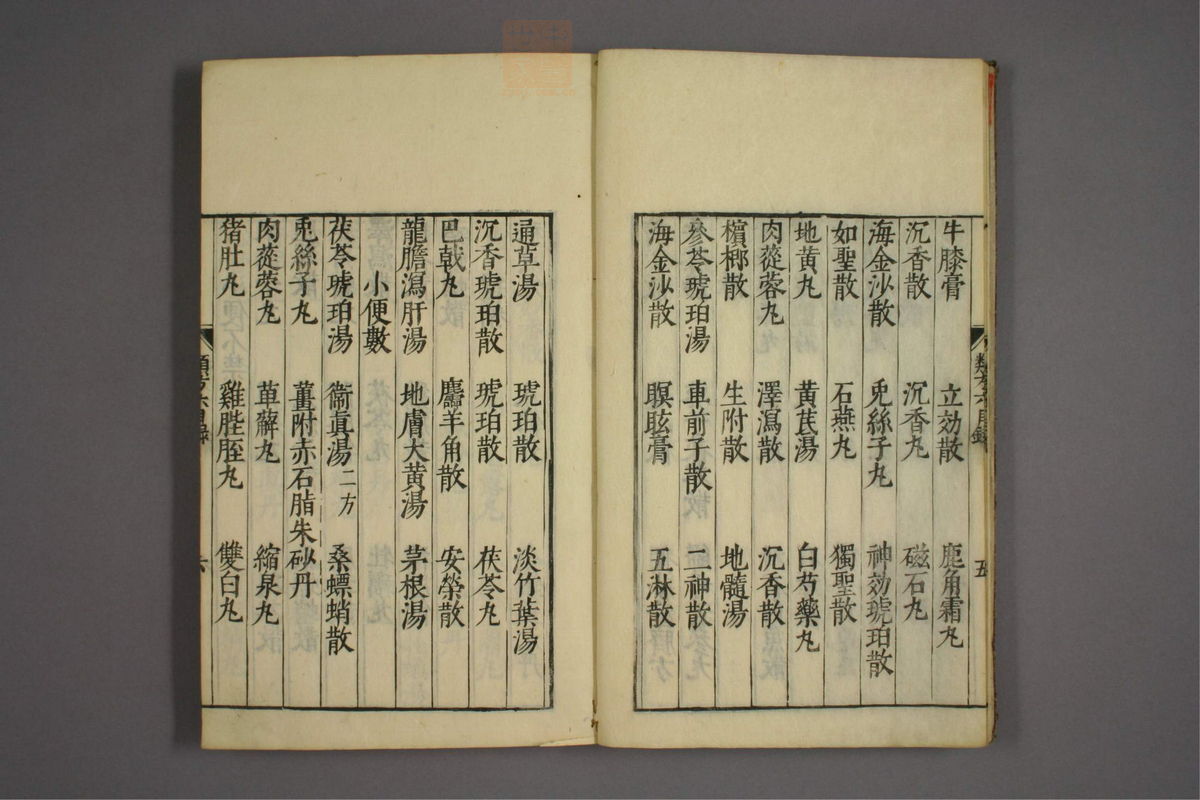 牛膝膏 立効散 鹿角霜丸
沉香散 沉香丸 磁石丸
海金沙散 兎絲子丸 神効琥珀散
如聖散 石燕丸 獨聖散
地黄丸 黄芪湯 白芍藥丸
肉蓯蓉丸 澤瀉散 沉香散
檳榔散 生附散 地髓湯
參苓琥珀湯 車前子散 二神散
海金沙散 瞑眩膏 五淋散
五
通草湯 琥珀散 淡竹葉湯
沉香琥珀散 琥珀散 茯苓丸
巴戟丸 麢羊角散 安榮散
龍膽瀉肝湯 地膚大黄湯 茅根湯
小便數
茯苓琥珀湯 衞眞湯二方 桑螵蛸散
兎絲子丸 薑附赤石脂朱砂丹
肉蓯蓉丸 萆薢丸 縮泉丸
猪肚丸 雞胜胵丸 雙白丸
六